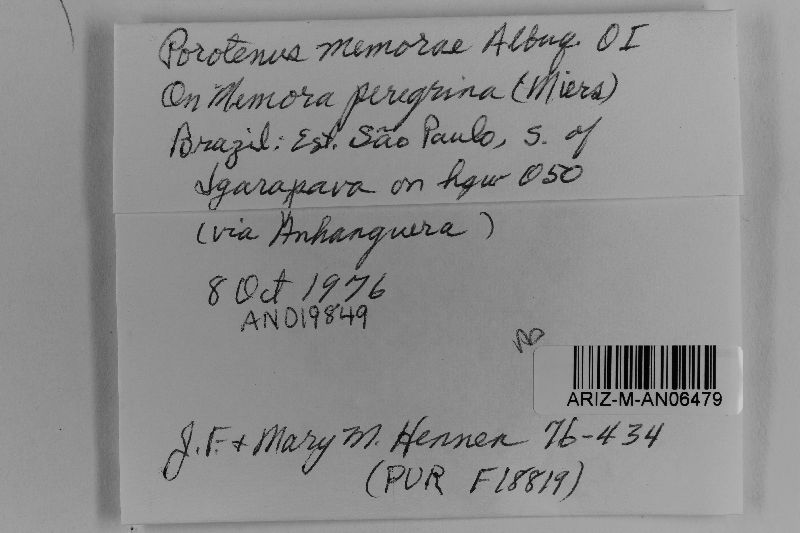 Porotenus memorae Albuq. O I
On Memora peregrina (Miers)
Brazil: Est. São Paulo, S. of
Igarapava on hgw 050
(via Anhanguera)
8 Oct 1976
AN019849
ARIZ-M-AN06479
J.F. + Mary M. Hennen 76-434
(PUR F18819)